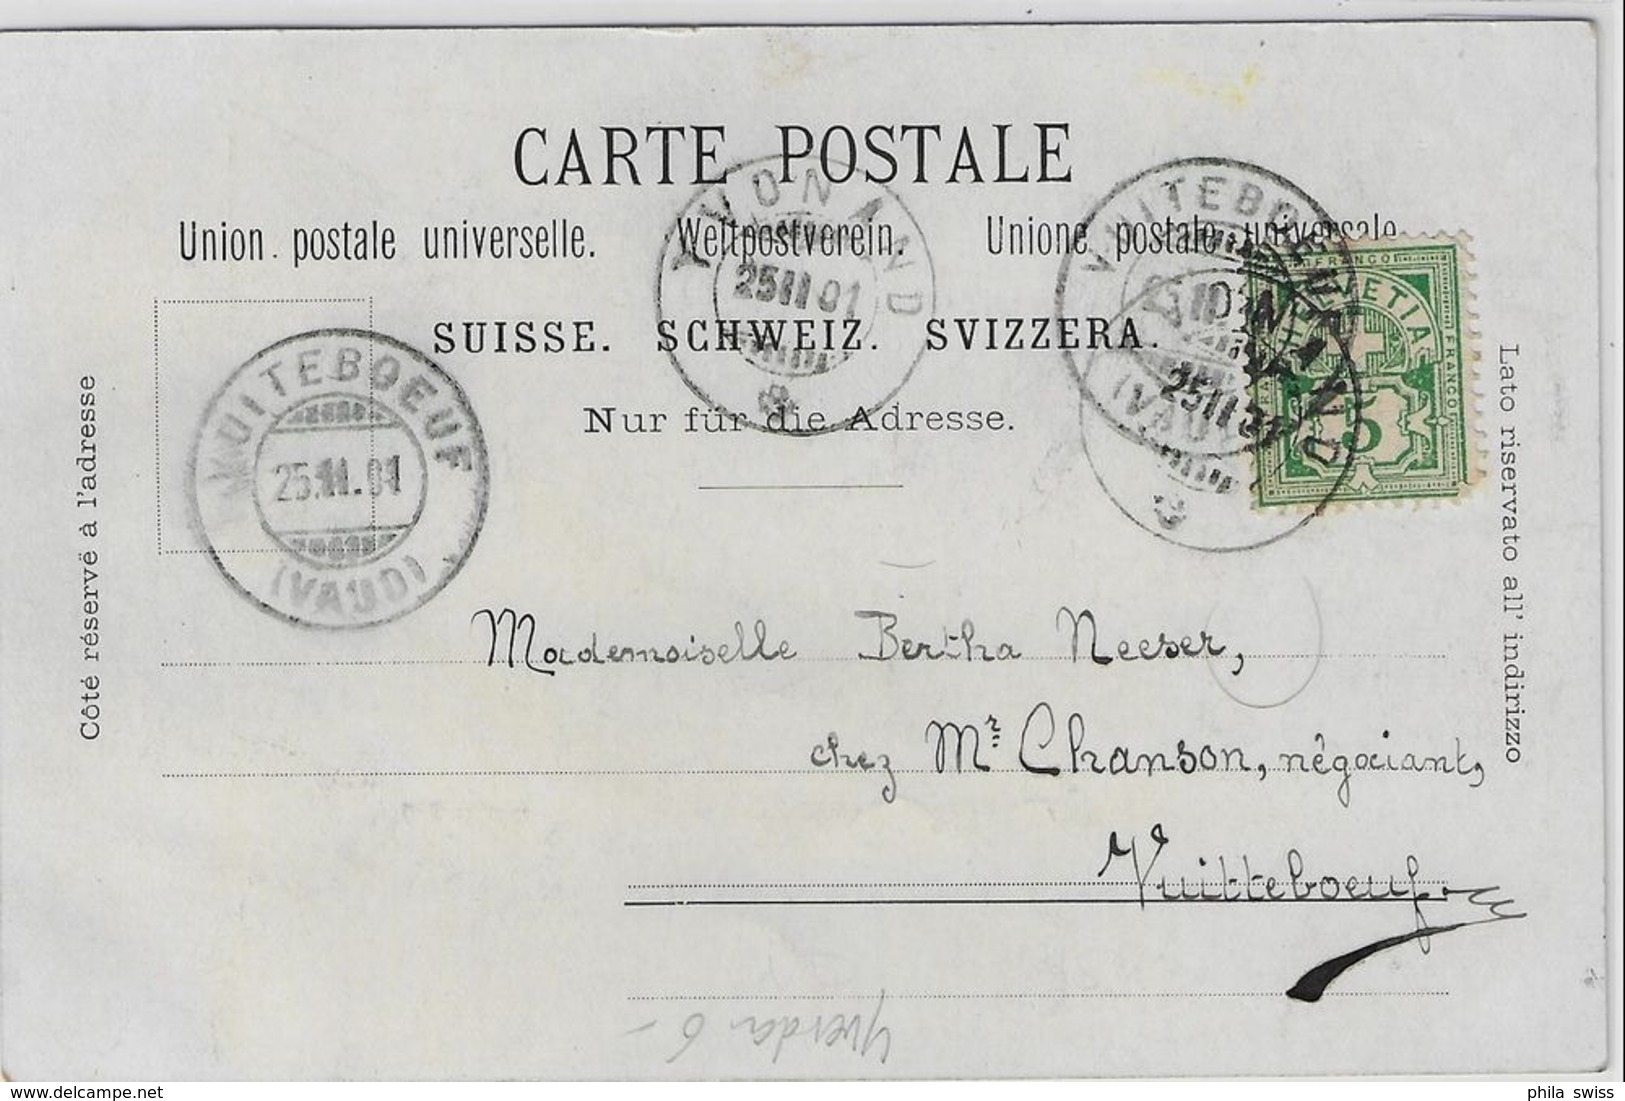 CARTE POSTALE
Union postale universelle. Weltpostverein. Unione postale universale
SUISSE. SCHWEIZ. SVIZZERA.
Nur für die Adresse.
Côté réservë à l'adresse
Lato riservato all' indirizzo
YVONAND
25 II 01
VUITEBOEUF
(VAUD)
YVONAND
25 II 01
VUITEBOEUF
25.II.01
(VAUD)
FRANCO
HELVETIA
FRANCO
5
Mademoiselle Bertha Neeser,
chez Mr. Chanson, négociant,
Vuitteboeuf
6 -
phila swiss